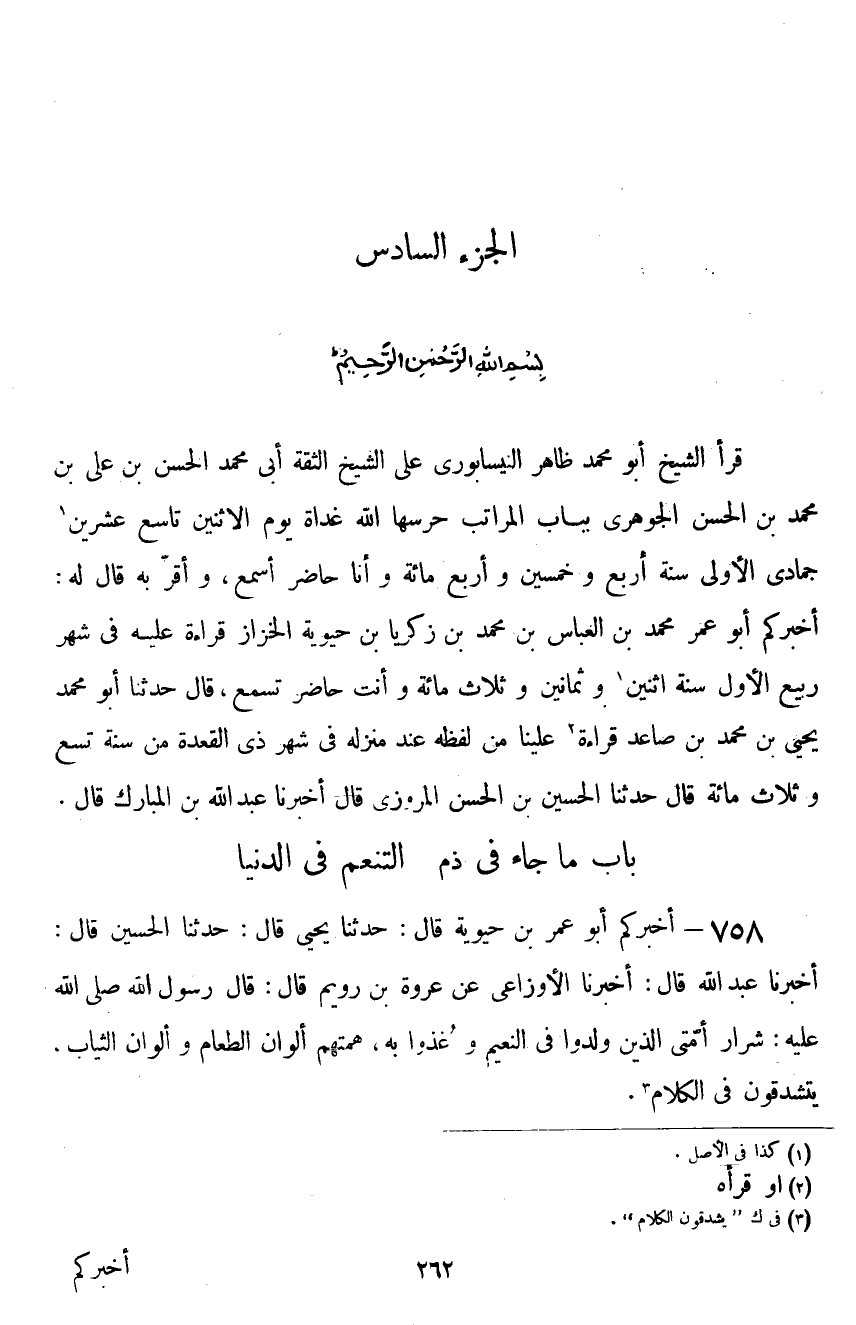 الجزء السادس
بِسْمِ اللهِ الرَّحْمٰنِ الرَّحِيمِ
قرأ الشيخ أبو محمد ظاهر النيسابورى على الشيخ الثقة أبى محمد الحسن بن على بن
محمد بن الحسن الجوهرى بباب المراتب حرسها الله غداة يوم الاثنين تاسع عشرين١
جمادى الأولى سنة أربع و خمسين و أربع مائة و أنا حاضر أسمع، و أقرّ به قال له :
أخبركم أبو عمر محمد بن العباس بن محمد بن زكريا بن حيوية الخزاز قراءة عليه فى شهر
ربيع الأول سنة اثنين١ و ثمانين و ثلاث مائة و أنت حاضر تسمع، قال حدثنا أبو محمد
يحيى بن محمد بن صاعد قراءة٢ علينا من لفظه عند منزله فى شهر ذى القعدة من سنة تسع
و ثلاث مائة قال حدثنا الحسين بن الحسن المروزى قال أخبرنا عبد الله بن المبارك قال .
باب ما جاء فى ذم التنعم فى الدنيا
٧٥٨ – أخبركم أبو عمر بن حيوية قال : حدثنا يحيى قال : حدثنا الحسين قال :
أخبرنا عبد الله قال : أخبرنا الأوزاعى عن عروة بن رويم قال : قال رسول الله صلى الله
عليه : شرار أمّتى الذين ولدوا فى النعيم و غُذوا به، همتهم ألوان الطعام و ألوان الثياب .
يتشدقون فى الكلام٣ .
(١) كذا فى الأصل .
(٢) او قرأه
(٣) فى ك " يشدقون الكلام " .
٢٦٢
أخبركم